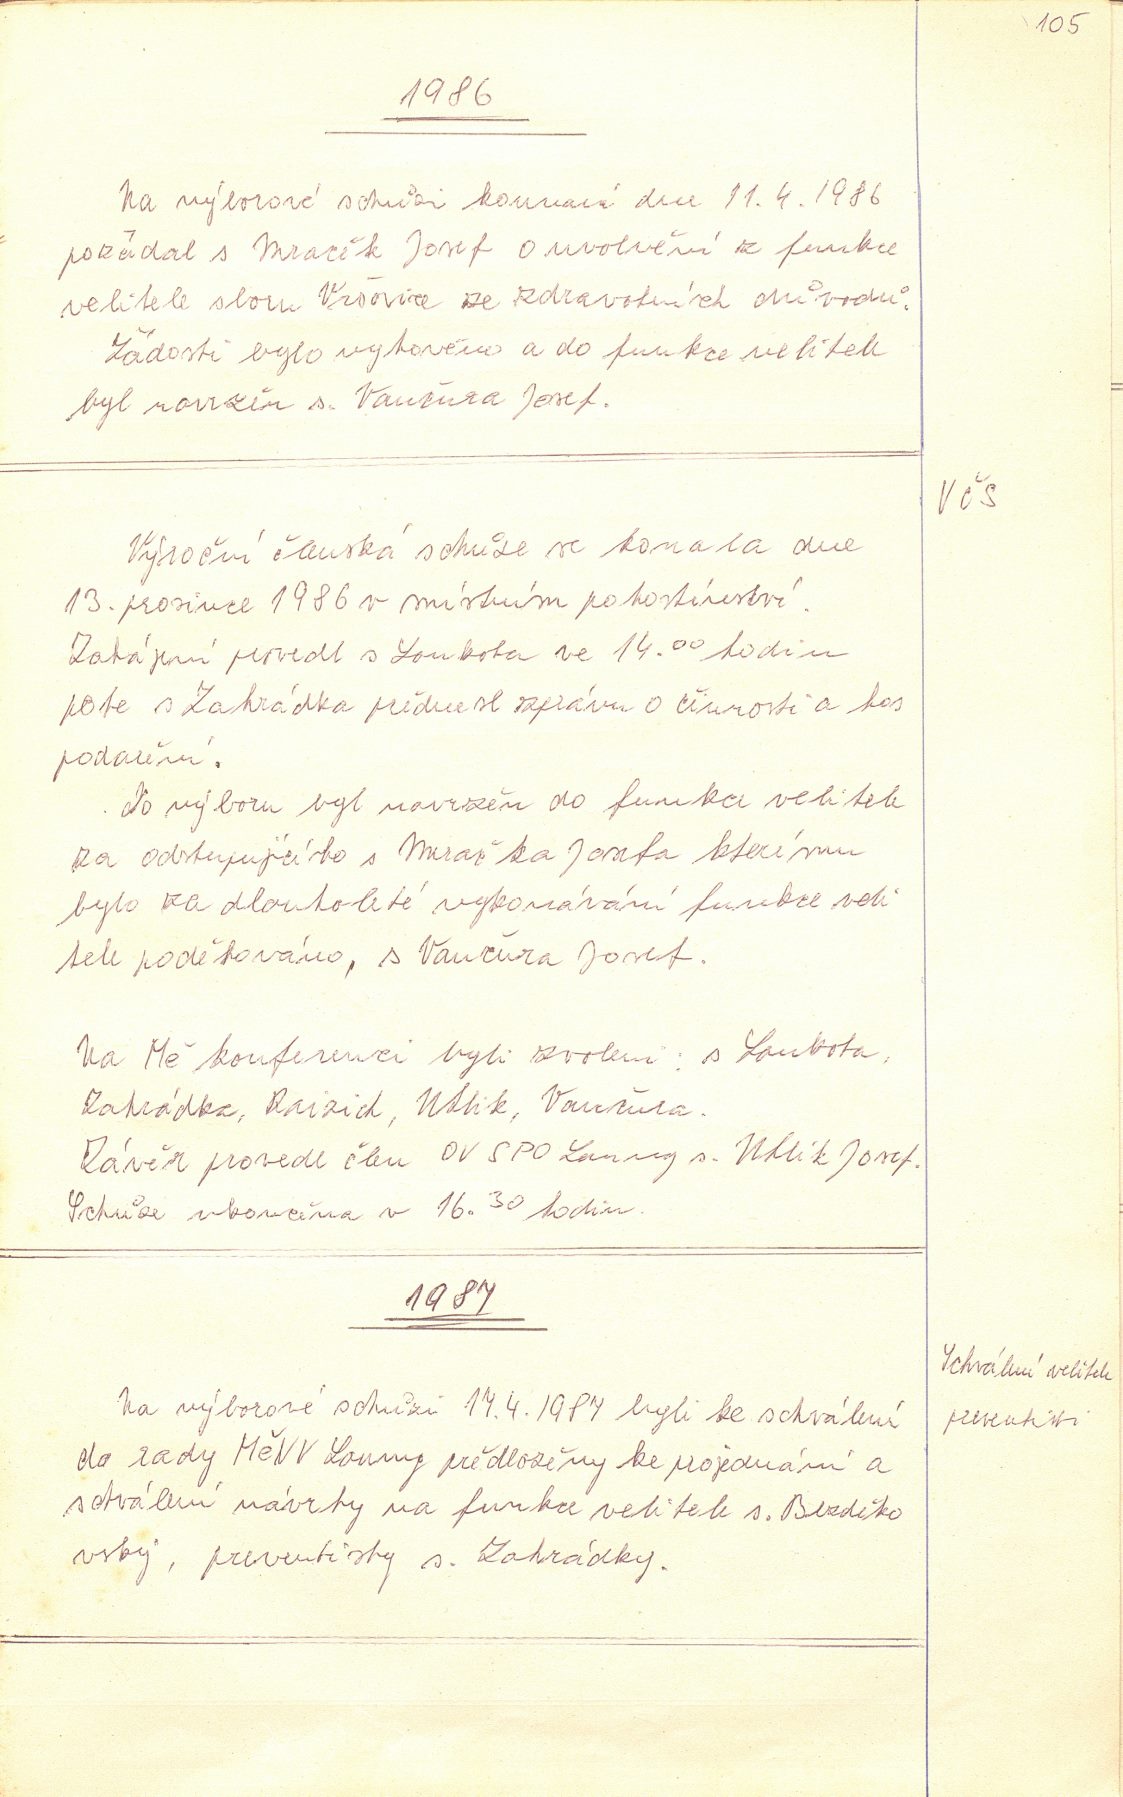 105
1986
Na výborové schůzi konané dne 11. 4. 1986
požádal s Mraček Josef o uvolnění z funkce
velitele sboru Vršovice ze zdravotních důvodů.
Žádosti bylo vyhověno a do funkce velitele
byl navržen s. Vančura Josef.
VČS
Výroční členská schůze se konala dne
13. prosince 1986 v místním pohostinství.
Zahájení provedl s Loukota ve 14.00 hodin
pote s Zahrádka přednesl zprávu o činosti a hos
podaření.
Do výboru byl navržen do funkce velitele
za odstupujícího s Mračka Josefa kterému
bylo za dlouholeté vykonávání funkce veli
tele poděkováno, s Vančura Josef.
Na Mě konferenci byli zvoleni: s Loukota,
Zahrádka, Raizich, Uhlik, Vančura.
Závěr provedl člen OV SPO Louny s. Uhlik Josef.
Schůze ukončena v 16.30 hodin.
1987
Schválení velitele
preventisti
Na výborové schůzi 17.4.1987 byli ke schválení
do rady MěNV Louny předloženy ke projednání a
schválení návrhy na funkce velitele s. Bezděko
vský, preventisty s. Zahrádky.